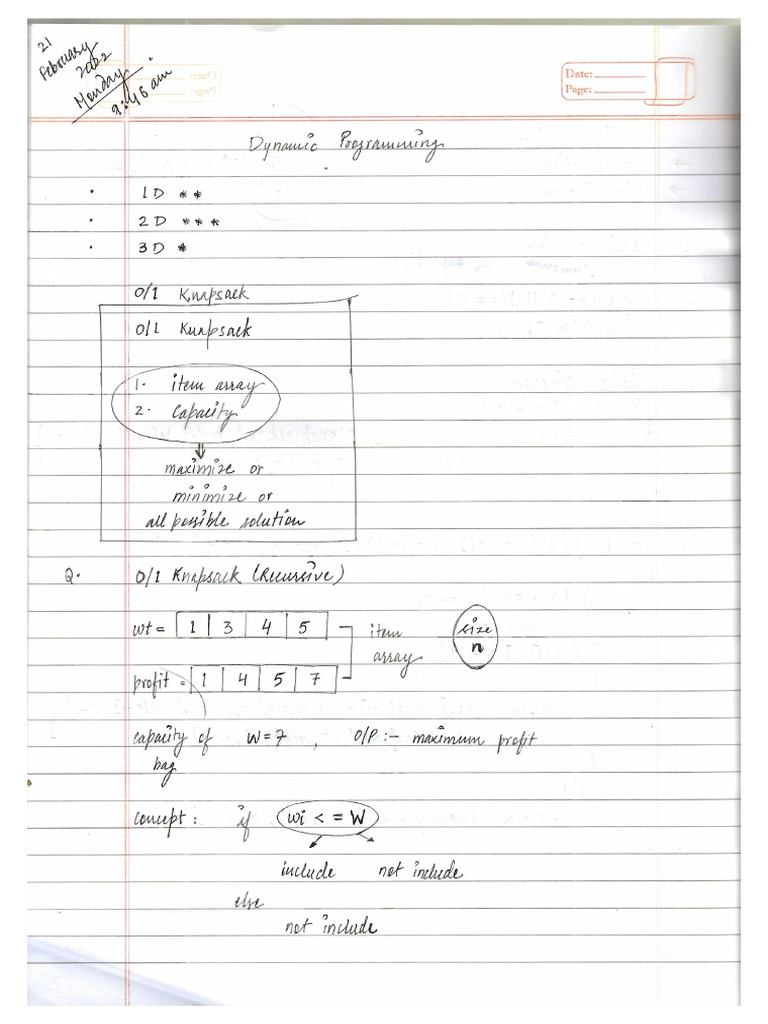 21
February
2022
Monday
9:45 am
Date:
Page:
Dynamic Programming
• 1D **
• 2D ***
• 3D *
0/1 Knapsack
0/1 Knapsack
1. item array
2. Capacity
maximize or
minimize or
all possible solution
Q. 0/1 Knapsack (Recursive)
wt = 1 3 4 5 item array size n
profit = 1 4 5 7
capacity of bag W=7 , O/P :- maximum profit
concept : if wi <= W
include not include
else
not include